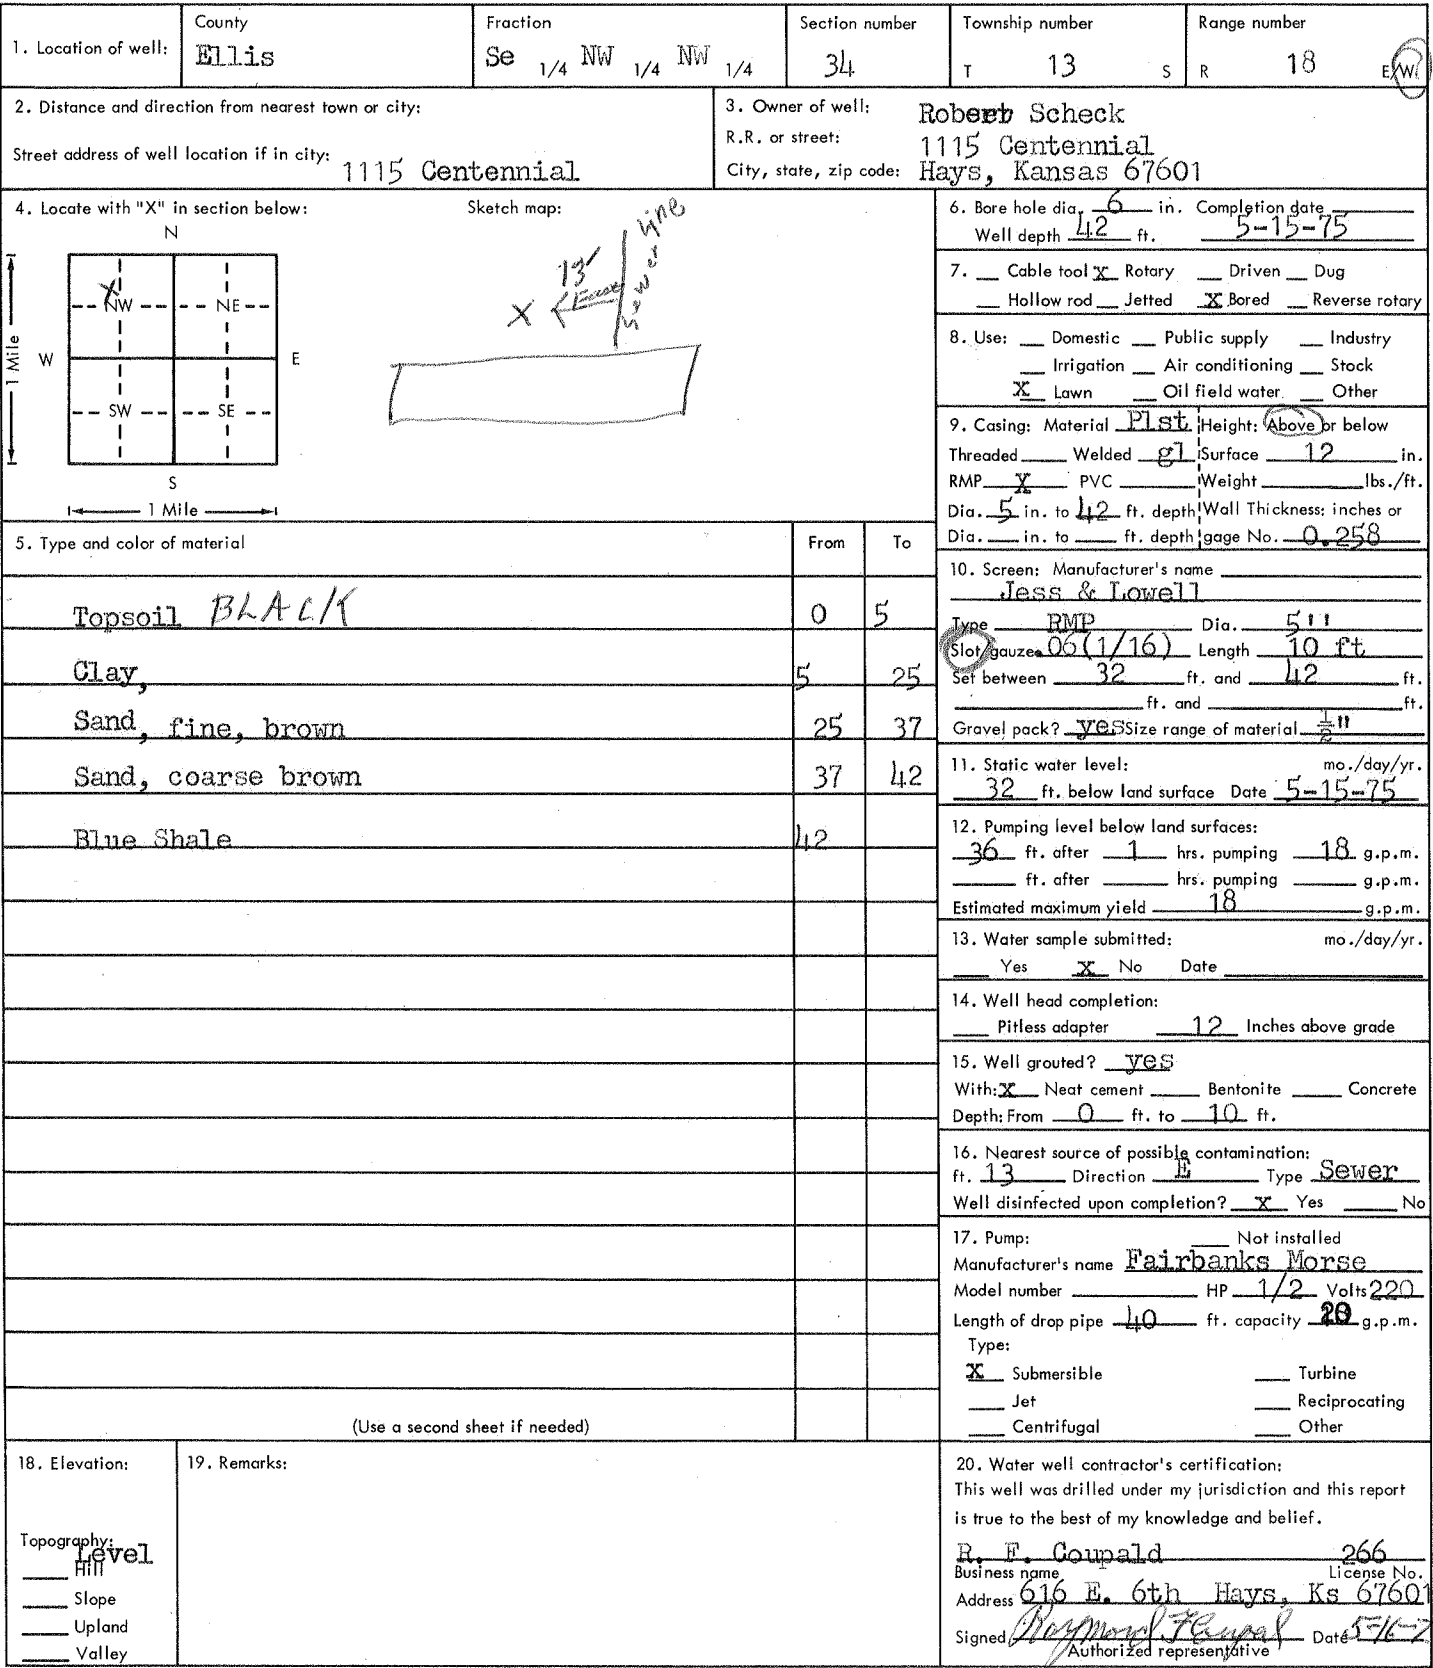 1. Location of well: County Ellis Fraction Se 1/4 NW 1/4 NW 1/4 Section number 34 Township number T 13 S Range number R 18 E/W
2. Distance and direction from nearest town or city:
Street address of well location if in city: 1115 Centennial
3. Owner of well: Robert Scheck
R.R. or street: 1115 Centennial
City, state, zip code: Hays, Kansas 67601
4. Locate with "X" in section below: Sketch map:
N
X
NW NE
W E
SW SE
S
1 Mile
1 Mile
X 13' East Sewer line
5. Type and color of material From To
Topsoil BLACK 0 5
Clay, 5 25
Sand, fine, brown 25 37
Sand, coarse brown 37 42
Blue Shale 42
(Use a second sheet if needed)
6. Bore hole dia. 6 in. Completion date
Well depth 42 ft. 5-15-75
7. Cable tool X Rotary Driven Dug
Hollow rod Jetted X Bored Reverse rotary
8. Use: Domestic Public supply Industry
Irrigation Air conditioning Stock
X Lawn Oil field water Other
9. Casing: Material Plst Height: Above or below
Threaded Welded gl Surface 12 in.
RMP X PVC Weight lbs./ft.
Dia. 5 in. to 42 ft. depth Wall Thickness: inches or
Dia. in. to ft. depth gage No. 0.258
10. Screen: Manufacturer's name
Jess & Lowell
Type RMP Dia. 5''
Slot/gauze .06(1/16) Length 10 ft
Set between 32 ft. and 42 ft.
ft. and ft.
Gravel pack? yes Size range of material 1/2"
11. Static water level: mo./day/yr.
32 ft. below land surface Date 5-15-75
12. Pumping level below land surfaces:
36 ft. after 1 hrs. pumping 18 g.p.m.
ft. after hrs. pumping g.p.m.
Estimated maximum yield 18 g.p.m.
13. Water sample submitted: mo./day/yr.
Yes X No Date
14. Well head completion:
Pitless adapter 12 Inches above grade
15. Well grouted? yes
With: X Neat cement Bentonite Concrete
Depth: From 0 ft. to 10 ft.
16. Nearest source of possible contamination:
ft. 13 Direction E Type Sewer
Well disinfected upon completion? X Yes No
17. Pump: Not installed
Manufacturer's name Fairbanks Morse
Model number HP 1/2 Volts 220
Length of drop pipe 40 ft. capacity g.p.m.
Type:
X Submersible Turbine
Jet Reciprocating
Centrifugal Other
18. Elevation:
Topography:
Level
Hill
Slope
Upland
Valley
19. Remarks:
20. Water well contractor's certification:
This well was drilled under my jurisdiction and this report
is true to the best of my knowledge and belief.
R. F. Coupald 266
Business name License No.
Address 616 E. 6th Hays, Ks 67601
Signed Raymond F Coupal Date 5-16-7
Authorized representative